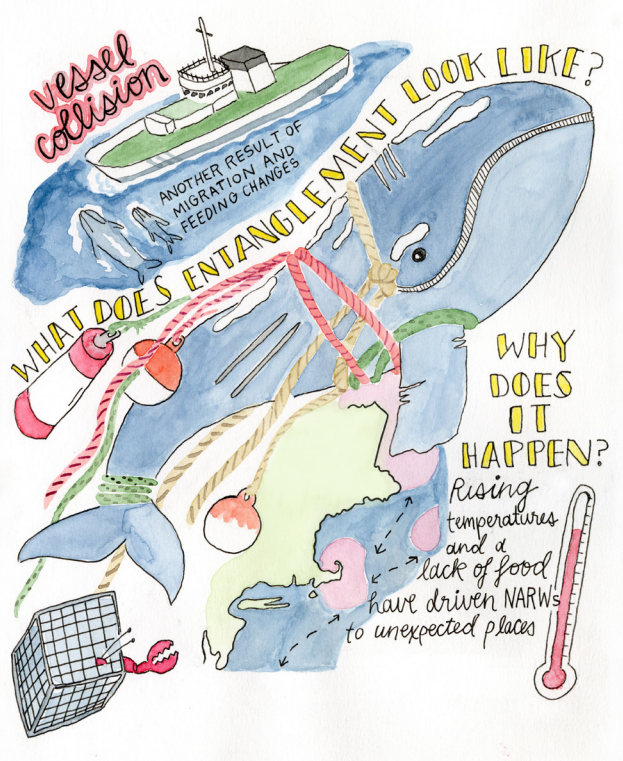 vessel
collision
ANOTHER RESULT OF
MIGRATION AND
FEEDING CHANGES
WHAT DOES ENTANGLEMENT LOOK LIKE?
WHY
DOES
IT
HAPPEN?
Rising
temperatures
and a
lack of food
have driven NARWs
to unexpected places